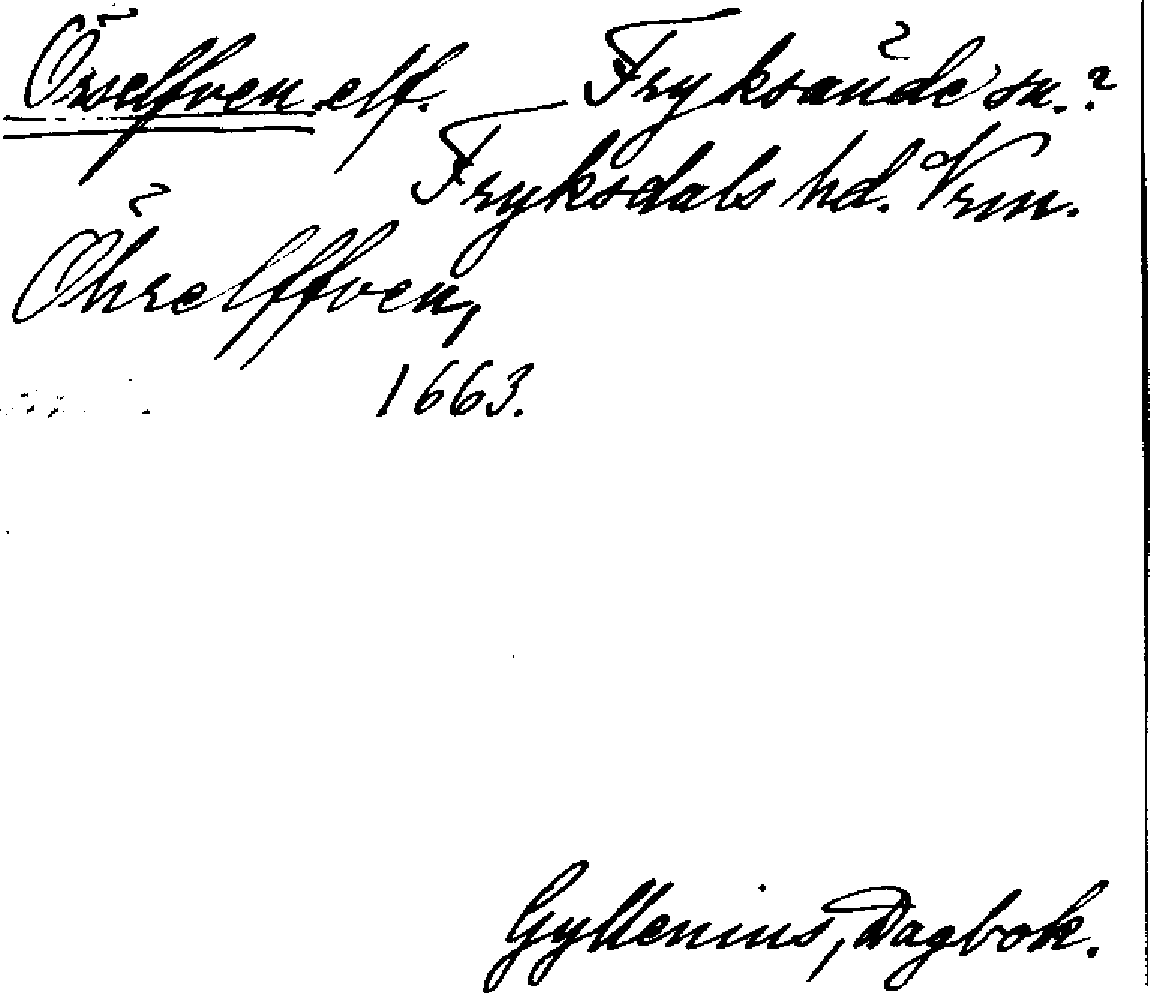 Örselfven elf. Fryksände sn.?
Fryksdals hd. Vrm.
Öhrelffven,
1663.
Gyllenius, Dagbok.